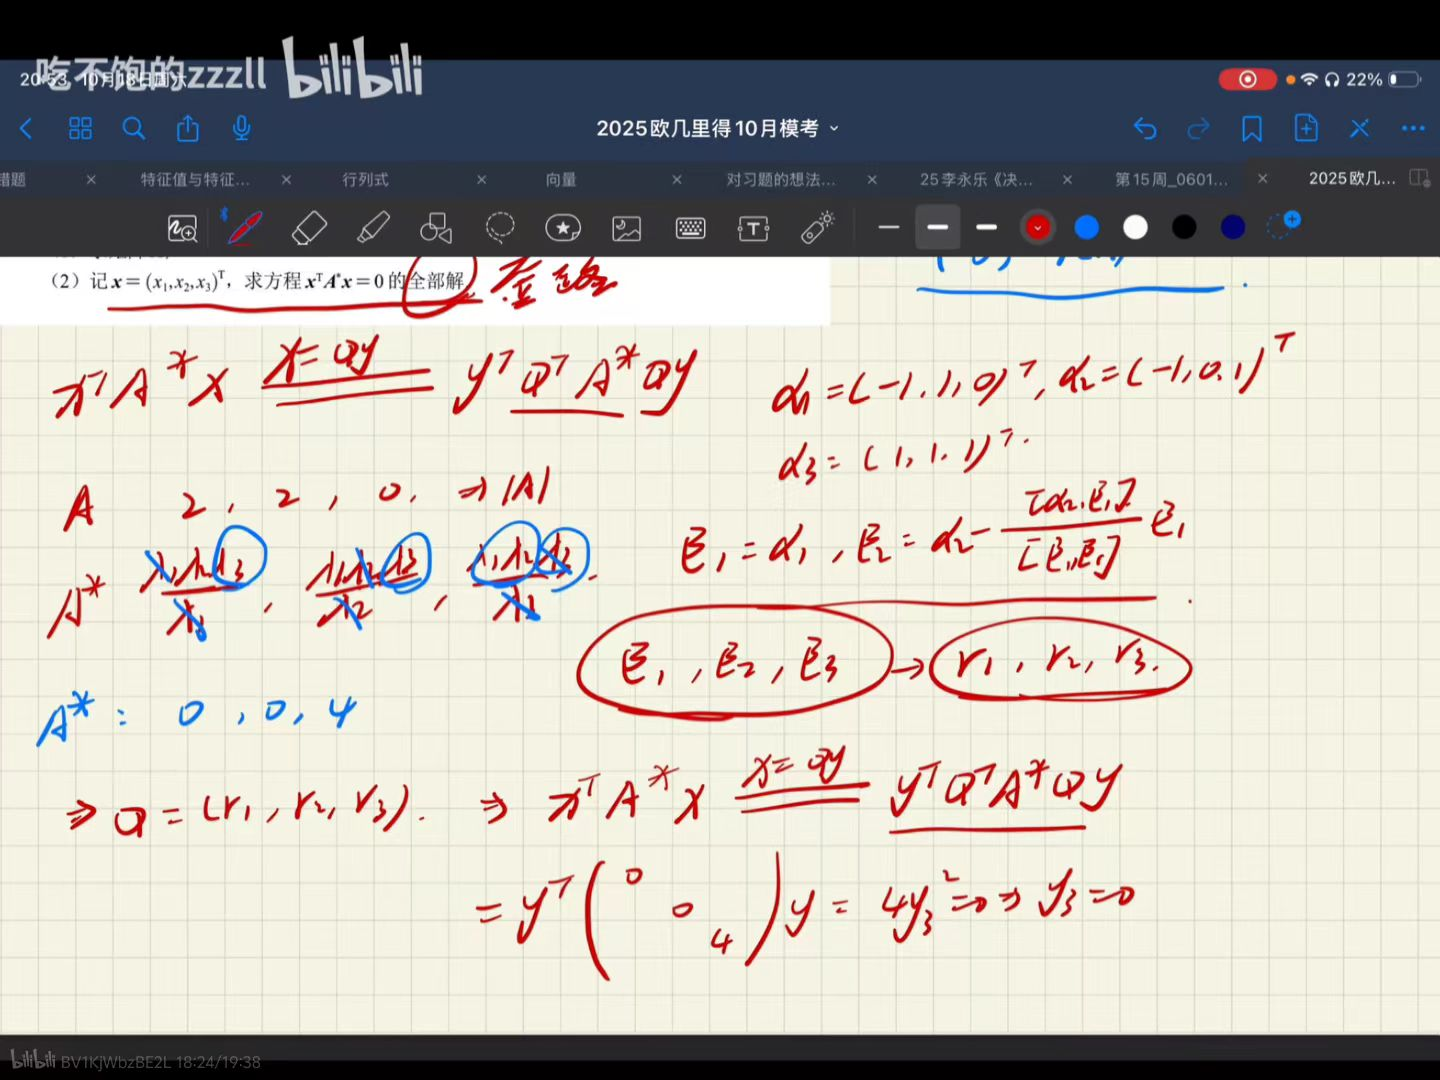 吃不饱的zzzll bilibili
20:53 10月18日周六
22%
2025欧几里得10月模考
错题 × 特征值与特征... × 行列式 × 向量 × 对习题的想法... × 25李永乐《决... × 第15周_0601... × 2025欧几...
(2) 记 x = (x₁,x₂,x₃)ᵀ, 求方程 xᵀA*x = 0 的全部解
xᵀA*x x=Qy yᵀQᵀA*Qy
α₁=(-1,1,0)ᵀ, α₂=(-1,0,1)ᵀ
α₃=(1,1,1)ᵀ.
A 2, 2, 0, ⇒ |A|
A* λ₁λ₂λ₃/λ₁, λ₁λ₂λ₃/λ₂, λ₁λ₂λ₃/λ₃.
β₁=α₁, β₂=α₂-[α₂,β₁]/[β₁,β₁] β₁
β₁, β₂, β₃ → r₁, r₂, r₃.
A*: 0, 0, 4
⇒ Q=(r₁, r₂, r₃). ⇒ xᵀA*x x=Qy yᵀQᵀA*Qy
=yᵀ(0 0 4)y = 4y₃²=0 ⇒ y₃=0
bilibili BV1KjWbzBE2L 18:24/19:38